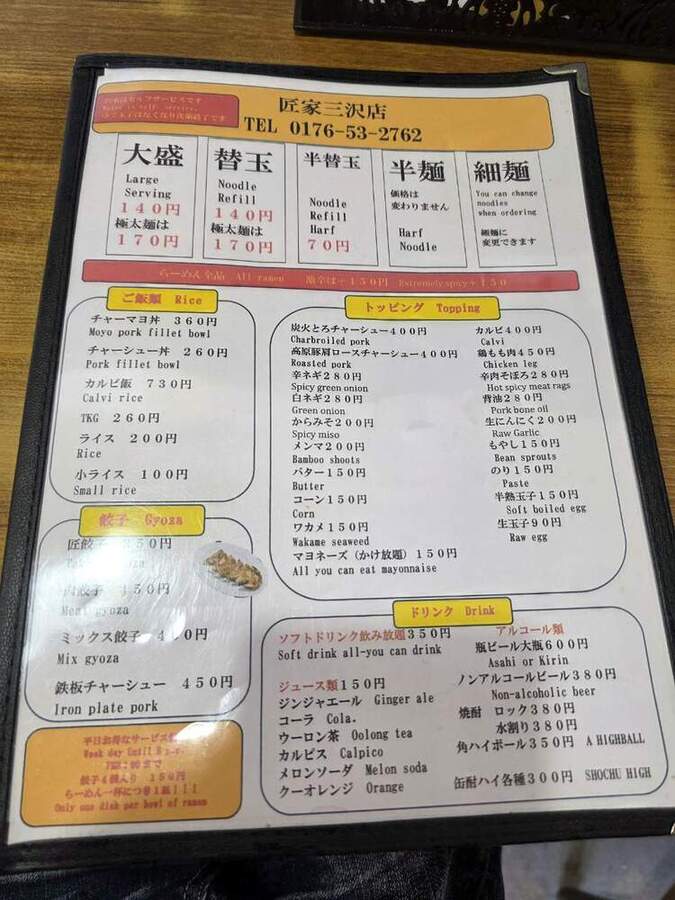 匠家三沢店
TEL 0176-53-2762
大盛
Large
Serving
140円
極太麺は
170円
替玉
Noodle
Refill
140円
極太麺は
170円
半替玉
Noodle
Refill
Harf
70円
半麺
価格は
変わりません
Harf
Noodle
細麺
You can change
noodles
when ordering
細麺に
変更できます
らーめん全品 All ramen 激辛は+150円 Extremely spicy+150
ご飯類 Rice
チャーマヨ丼 360円
Moyo pork fillet bowl
チャーシュー丼 260円
Pork fillet bowl
カルビ飯 730円
Calvi rice
TKG 260円
ライス 200円
Rice
小ライス 100円
Small rice
餃子 Gyoza
匠餃子
肉餃子 450円
Meat gyoza
ミックス餃子
Mix gyoza
鉄板チャーシュー 450円
Iron plate pork
平日お得なサービス
Week day
餃子4個入り 150円
らーめん一杯につき1皿!!!
Only one dish par bowl of ramen
トッピング Topping
炭火とろチャーシュー400円
Charbroiled pork
高原豚肩ロースチャーシュー400円
Roasted pork
辛ネギ280円
Spicy green onion
白ネギ280円
Green onion
からみそ200円
Spicy miso
メンマ200円
Bamboo shoots
バター150円
Butter
コーン150円
Corn
ワカメ150円
Wakame seaweed
マヨネーズ(かけ放題)150円
All you can eat mayonnaise
カルビ400円
Calvi
鶏もも肉450円
Chicken leg
辛肉そぼろ280円
Hot spicy meat rags
背油280円
Pork bone oil
生にんにく200円
Raw Garlic
もやし150円
Bean sprouts
のり150円
Paste
半熟玉子150円
Soft boiled egg
生玉子90円
Raw egg
ドリンク Drink
ソフトドリンク飲み放題350円
Soft drink all-you can drink
ジュース類150円
ジンジャエール Ginger ale
コーラ Cola.
ウーロン茶 Oolong tea
カルピス Calpico
メロンソーダ Melon soda
クーオレンジ Orange
アルコール類
瓶ビール大瓶600円
Asahi or Kirin
ノンアルコールビール380円
Non-alcoholic beer
焼酎 ロック380円
水割り380円
角ハイボール350円 A HIGHBALL
缶酎ハイ各種300円 SHOCHU HIGH